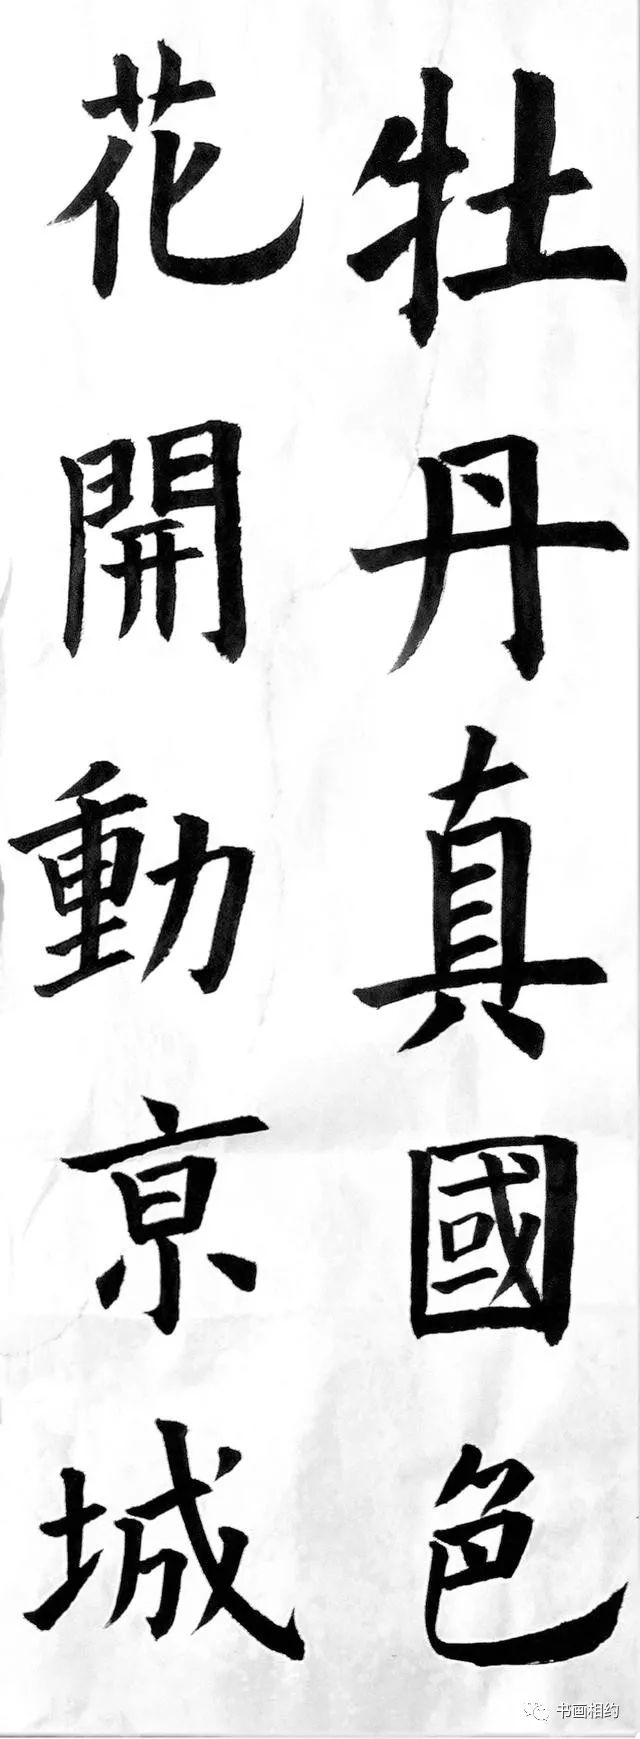 牡丹真國色
花開動京城
书画相约